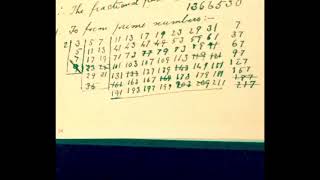 ∴ The fractional part
1366530
To form prime numbers:—
2 | 3 | 5 7 | 11 13 17 19 23 29 31 7
5 | 11 13 | 41 43 47 49 53 59 61 37
7 | 17 19 | 71 73 77 79 83 89 91 67
23 25 | 101 103 107 109 113 119 121 97
29 31 | 131 133 137 139 143 149 151 127
161 163 167 169 173 179 181 157
191 193 197 199 203 209 211 187
217